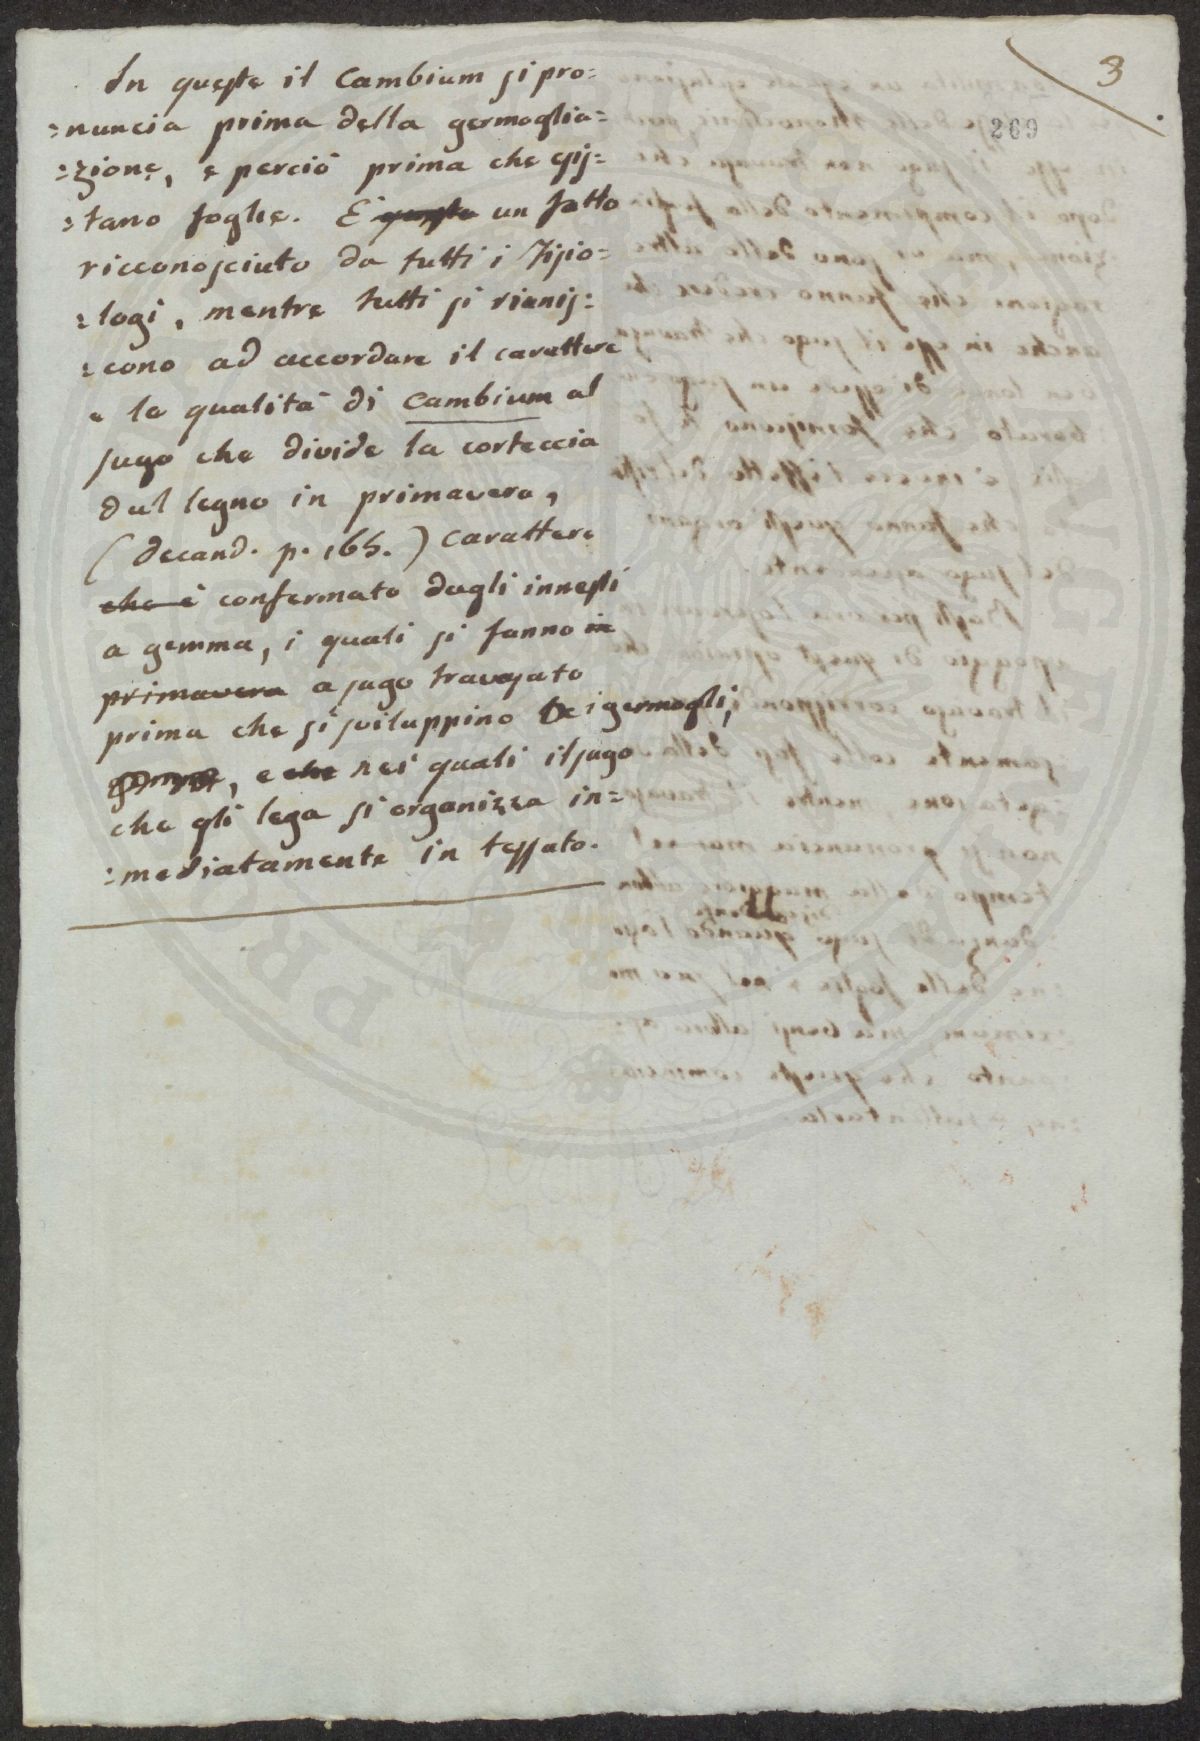 3
269
In queste il Cambium si pro=
=nuncia prima della germoglia=
=zione, e perciò prima che esis=
=tano foglie. E' questo un fatto
ricconosciuto da tutti i Fisio=
=logi, mentre tutti si riunis=
=cono ad accordare il carattere
e la qualità di Cambium al
sugo che divide la corteccia
dal legno in primavera,
(Decand. p. 165.) carattere
che è confermato dagli innesti
a gemma, i quali si fanno in
primavera a sugo travasato
prima che si sviluppino i germogli,
, e che nei quali il sugo
che gli lega si organizza im=
=mediatamente in tessuto.